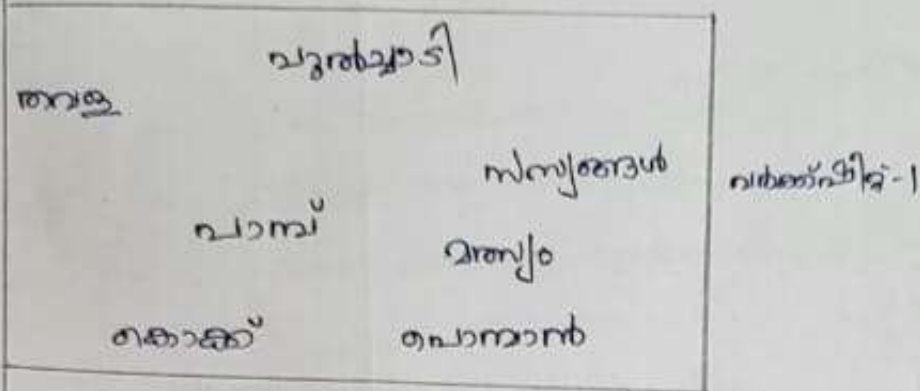 പുൽച്ചാടി
തവള
സസ്യങ്ങൾ
വർക്ക്ഷീറ്റ് - 1
പാമ്പ്
മത്സ്യം
കൊക്ക്
പൊന്മാൻ